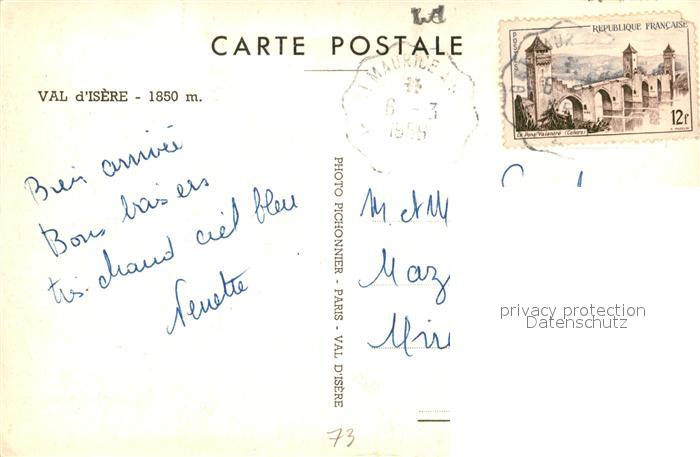 CARTE POSTALE
VAL d'ISÈRE - 1850 m.
Bien arrivée
Bons baisers
très chaud ciel bleu
Nenette
PHOTO PICHONNIER - PARIS - VAL D'ISÈRE
MAURICE
6 - 3
1956
REPUBLIQUE FRANÇAISE
POSTES
12F
Le Pont Valentré (Cahors)
M. et M
Maz
Mire
privacy protection
Datenschutz
73